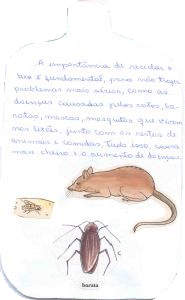 A importância de reciclar o
lixo é fundamental, para não trazer
problemas mais sérios, como as
doenças causadas pelos ratos, ba-
ratas, moscas, mosquitos que vivem
nos lixões, junto com os restos de
animais e comidas. Tudo isso, causa
mau cheiro e o aumento de doenças.
barata